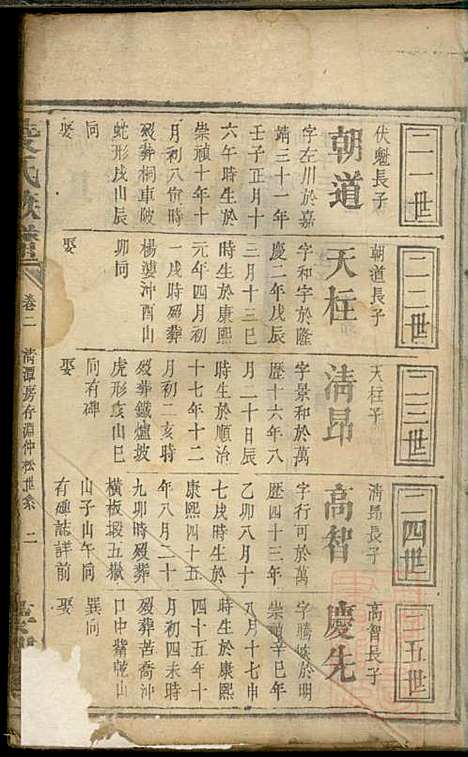 二一世
伏魁長子
朝道
字左川於嘉
靖三十一年
壬子正月十
六午時生於
崇禎十年十
月初八寅時
歿葬桐車陂
蛇形戌山辰
同
娶
二二世
朝道長子
天柱
字和字於隆
慶二年戊辰
三月十三巳
時生於康熙
元年四月初
一戌時歿葬
楊婆沖酉山
卯同
娶
二三世
天柱子
清昂
字景和於萬
歷十六年八
月二十日辰
時生於順治
十七年十二
月初二亥時
歿葬鐵爐坡
虎形亥山巳
向有碑
娶
二四世
清昂長子
高智
字行可於萬
歷四十三年
乙卯八月十
七戌時生於
康熙四十五
年八月二十
九卯時歿葬
橫板塅五嶽
山子山午向
有碑誌詳前
娶
二五世
高智長子
慶先
字騰蛟於明
崇禎辛巳年
八月十七酉
時生於康熙
四十五年十
月初四未時
歿葬苦喬沖
口中嘴乾山
巽向
娶
氏族譜
卷二
清潭房存淵仲松世系
二